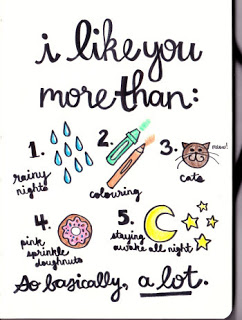 i like you
more than:
1.
rainy
nights
2.
colouring
3.
meow!
cats
4.
pink
sprinkle
doughnuts
5.
staying
awake all night
So basically, a lot.